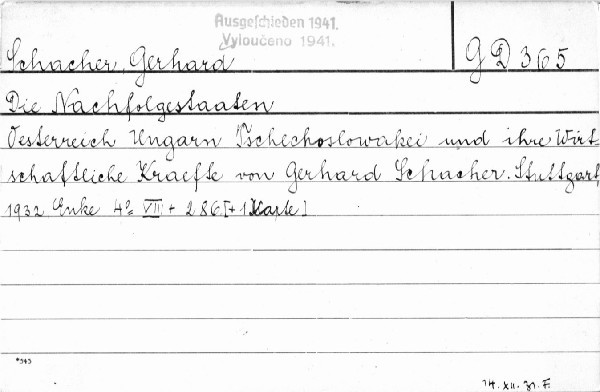 Ausgeschieden 1941.
Vyloučeno 1941.
Schacher, Gerhard
GD 365
Die Nachfolgestaaten
Oesterreich Ungarn Tschechoslowakei und ihre Wirt-
schaftliche Kraefte von Gerhard Schacher. Stuttgart,
1932 Enke 4° VII + 286 [+ 1 Karte]
*343
14. XII. 31. F.